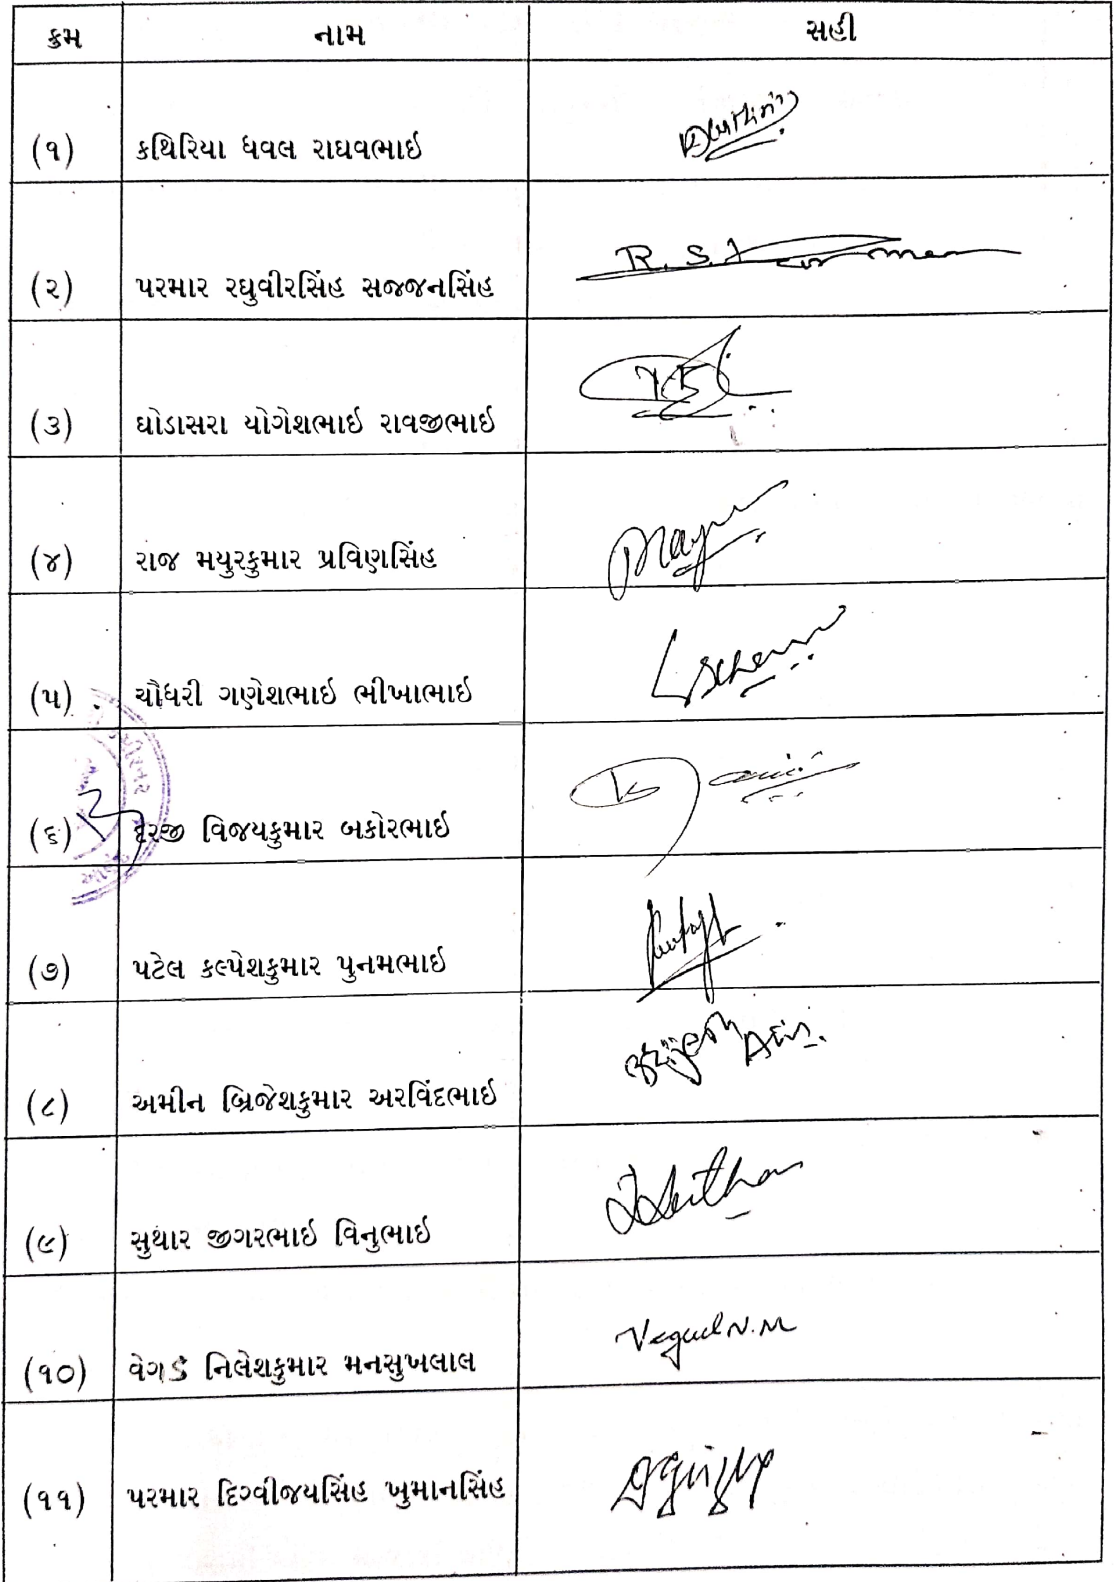 ક્રમ નામ સહી
(૧) કથિરિયા ધવલ રાઘવભાઇ
(૨) પરમાર રઘુવીરસિંહ સજ્જનસિંહ R.S.
(૩) ઘોડાસરા યોગેશભાઇ રાવજીભાઇ
(૪) રાજ મયુરકુમાર પ્રવિણસિંહ
(૫) ચૌધરી ગણેશભાઇ ભીખાભાઇ
(૬) દરજી વિજયકુમાર બકોરભાઇ
(૭) પટેલ કલ્પેશકુમાર પુનમભાઇ
(૮) અમીન બ્રિજેશકુમાર અરવિંદભાઇ
(૯) સુથાર જીગરભાઇ વિનુભાઇ
(૧૦) વેગડ નિલેશકુમાર મનસુખલાલ N.M
(૧૧) પરમાર દિગ્વીજયસિંહ ખુમાનસિંહ